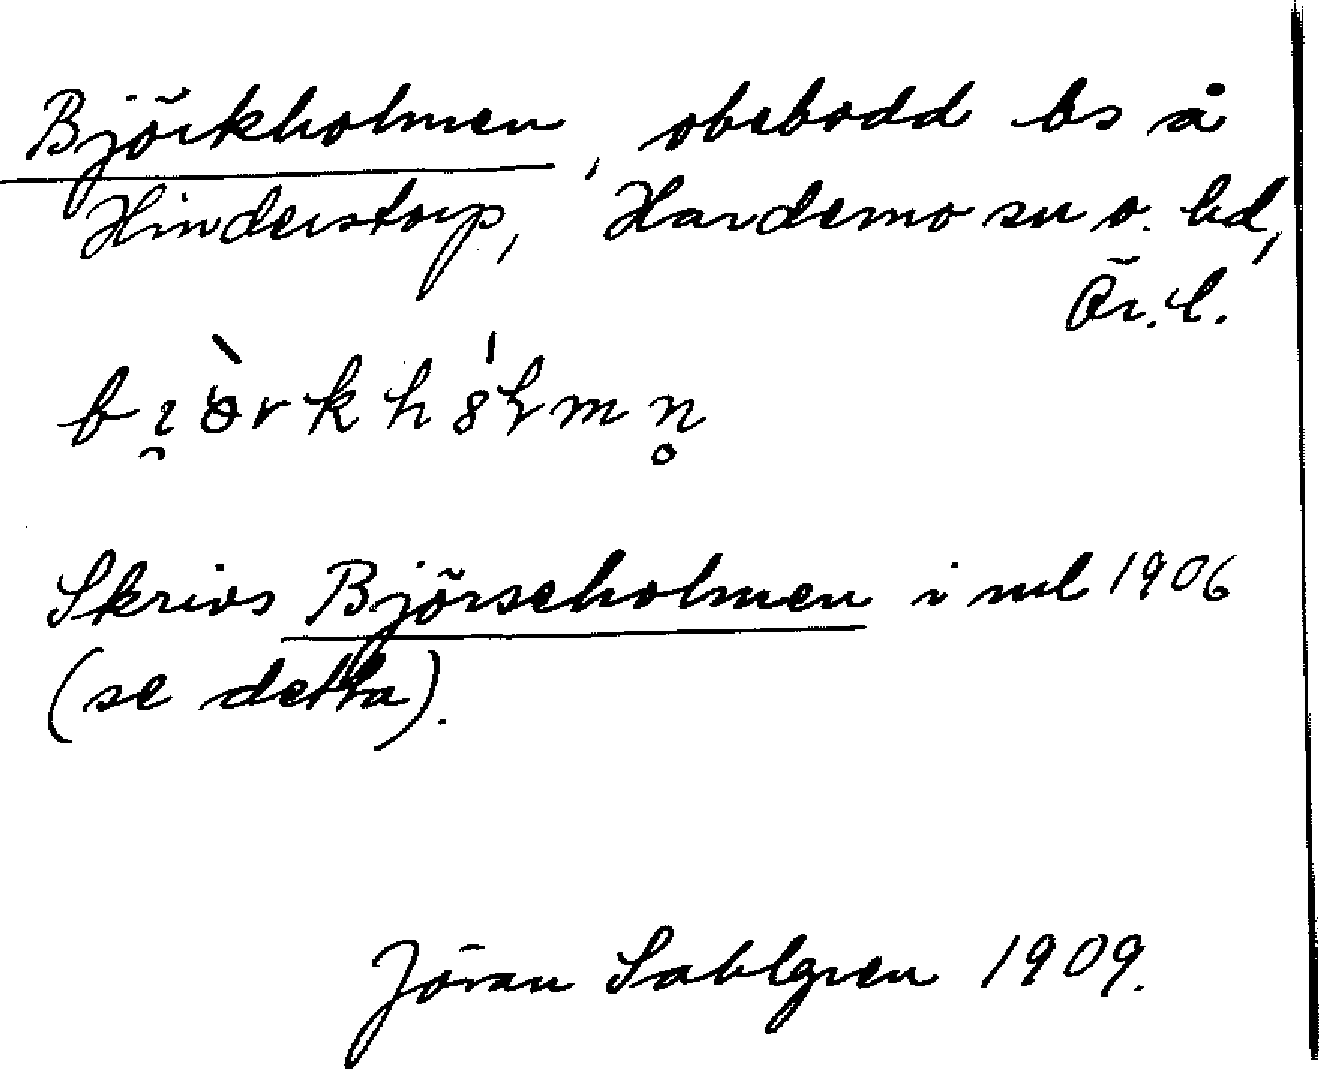 Björkholmen, obebodd ls å
Hinderstorp, Hardemo sn o. hd,
Ör. l.
Skrivs Björseholmen i ml 1906
(se detta).
Jöran Sahlgren 1909.